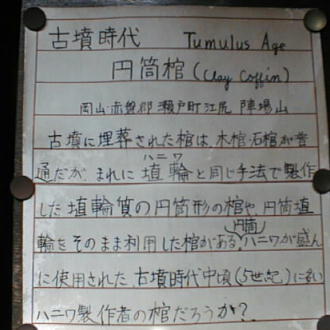 古墳時代 Tumulus Age
円筒棺 (Clay Coffin)
岡山・赤磐郡 瀬戸町江尻 陣場山
古墳に埋葬された棺は、木棺・石棺が普
通だが、まれに埴輪と同じ手法で製作
ハニワ
した埴輪質の円筒形の棺や、円筒埴
輪をそのまま利用した棺がある。ハニワが盛ん
円筒
に使用された古墳時代中頃(5世紀)に多い
ハニワ製作者の棺だろうか?